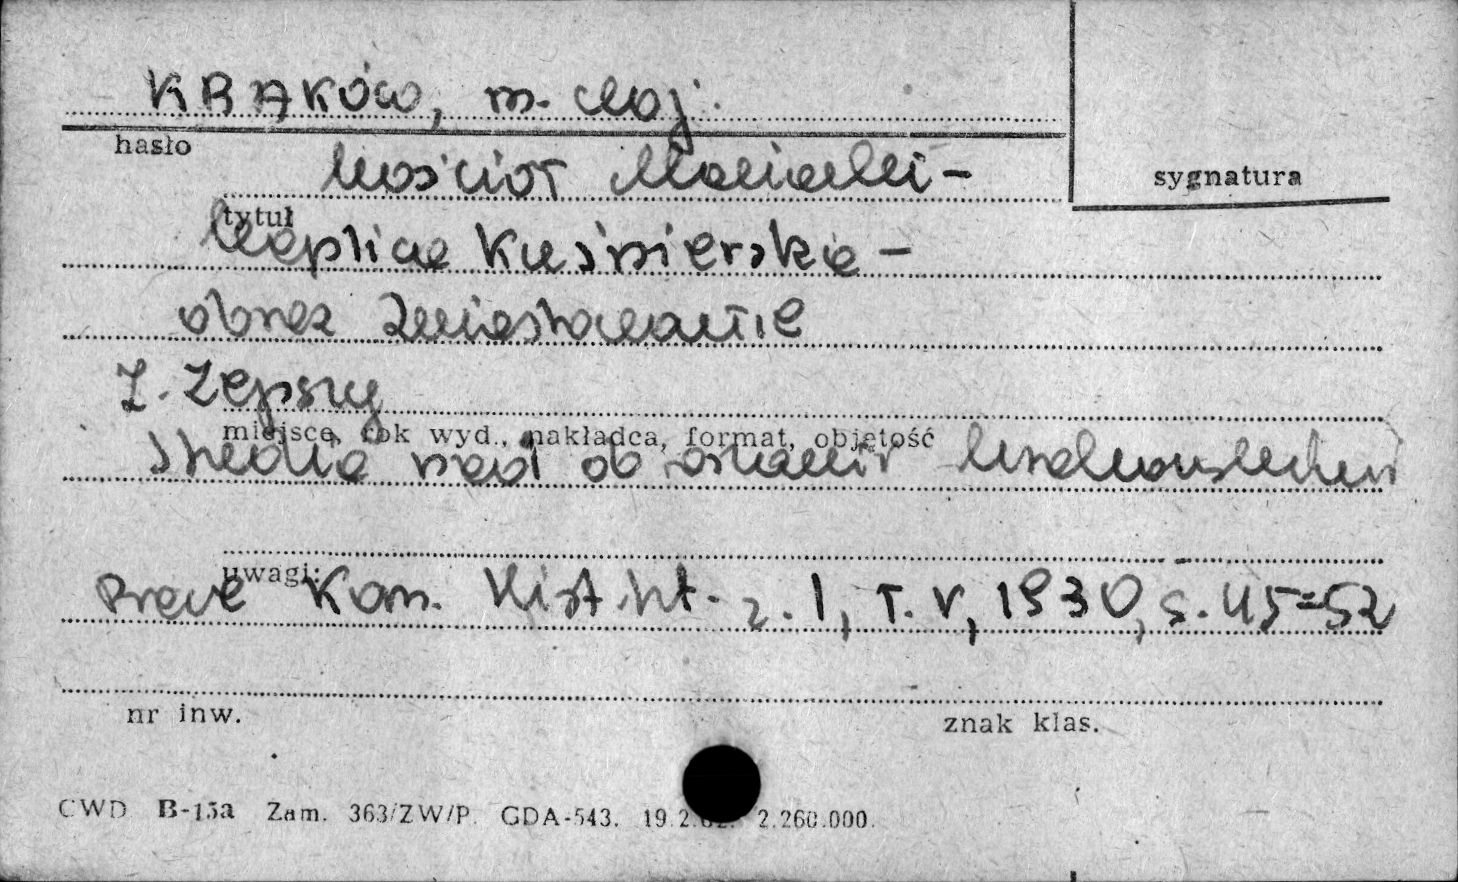 KRAKÓW, m. woj.
hasło
Kościół Mariacki -
sygnatura
tytuł
Kaplica Kuśnierska -
obraz Zwiastowanie
L. Lepszy
miejsce, rok wyd., nakładca, format, objętość
Studia nad obrazami krakowskimi
uwagi:
Prace Kom. Hist. szt. z. 1, T. V, 1930, s. 45-52
nr inw.
znak klas.
CWD B-15a Zam. 363/ZW/P. GDA-543. 19.2. 2.260.000.